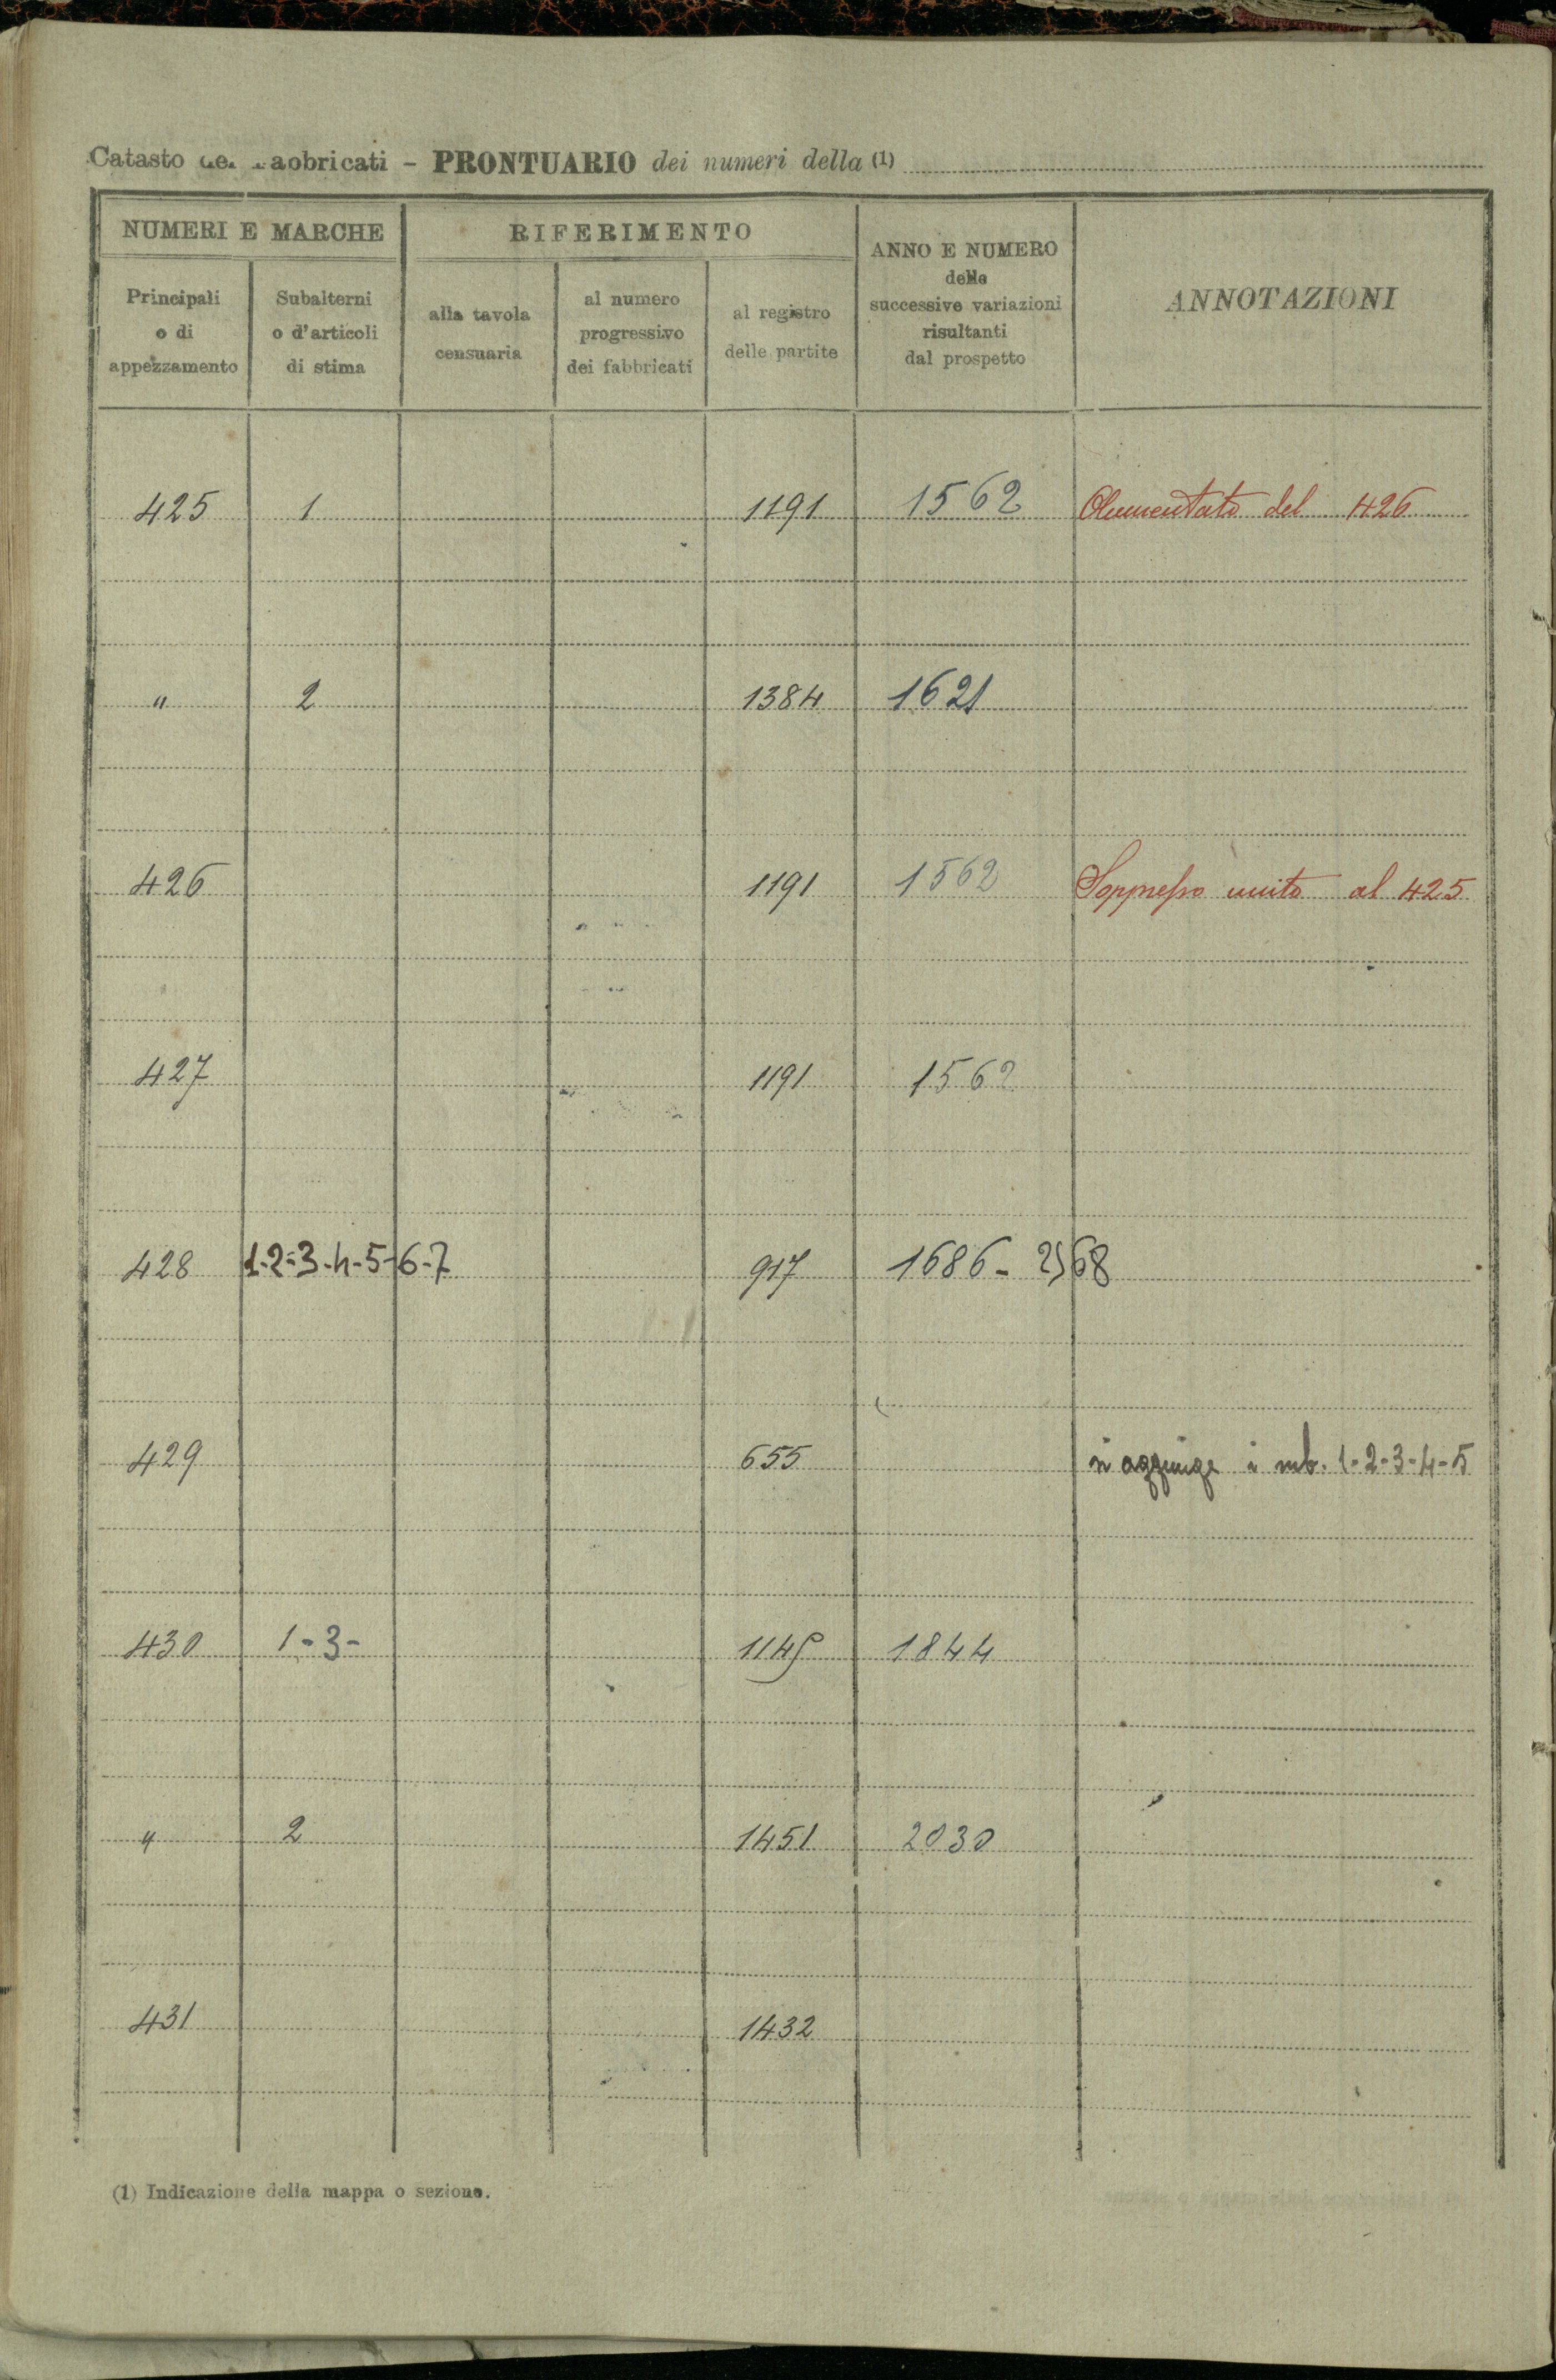 Catasto dei Fabbricati - PRONTUARIO dei numeri della (1)
NUMERI E MARCHE RIFERIMENTO ANNO E NUMERO delle successive variazioni risultanti dal prospetto ANNOTAZIONI
Principali o di appezzamento Subalterni o d'articoli di stima alla tavola censuaria al numero progressivo dei fabbricati al registro delle partite
425 1 1191 1562 Aumentato del 426
" 2 1384 1621
426 1191 1562 Soppresso unito al 425
427 1191 1562
428 1-2-3-4-5-6-7 917 1686 - 2568
429 655 si aggiunge i sub. 1-2-3-4-5
430 1-3- 1145 1844
" 2 1451 2030
431 1432
(1) Indicazione della mappa o sezione.